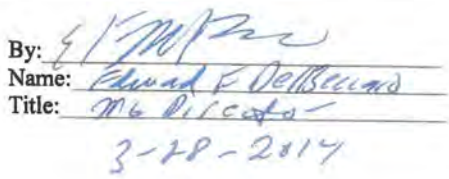 By:
Name: Edward F DelBeccaro
Title: Mg Director
3-28-2014